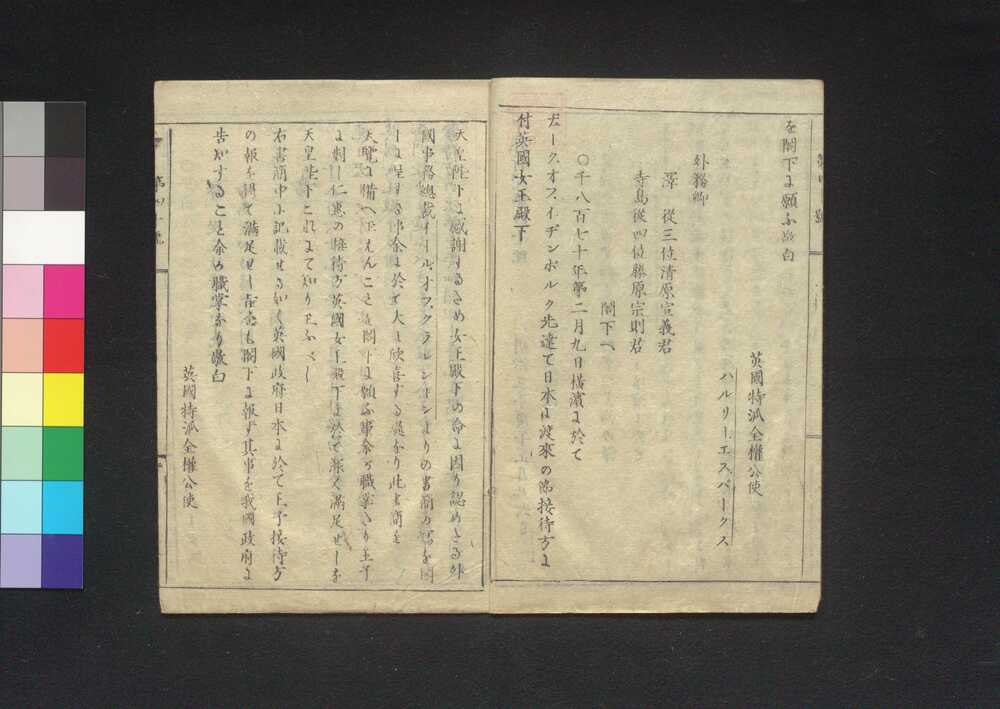 を閣下に願ふ敬白
英國特派全權公使
ハルリー、エス、パークス
外務卿
澤　從三位清原宣義君
寺島從四位藤原宗則君
閣下へ
〇千八百七十年第二月九日橫濱に於て
ヂークオスイヂンボルク先達て日本に渡來の節接待方に
付英國女王殿下
天皇陛下に感謝するため女王殿下の命に因り認めたる外
國事務總裁イールオスクラレンドンよりの書簡の寫を閣
下に呈する事余に於て大に欣喜する處なり此書簡を
天覽に備へ玉はんことを閣下に願ふ事余が職掌なり王子
に對し仁惠の接待方英國女王殿下に於て深く滿足せしを
天皇陛下これにて知り玉ふべし
右書簡中に記載せる如く英國政府日本に於て王子接待方
の報を得て滿足せし旨をも閣下に報ず其事を我國政府に
告知すること余の職掌なり敬白
英國特派全權公使